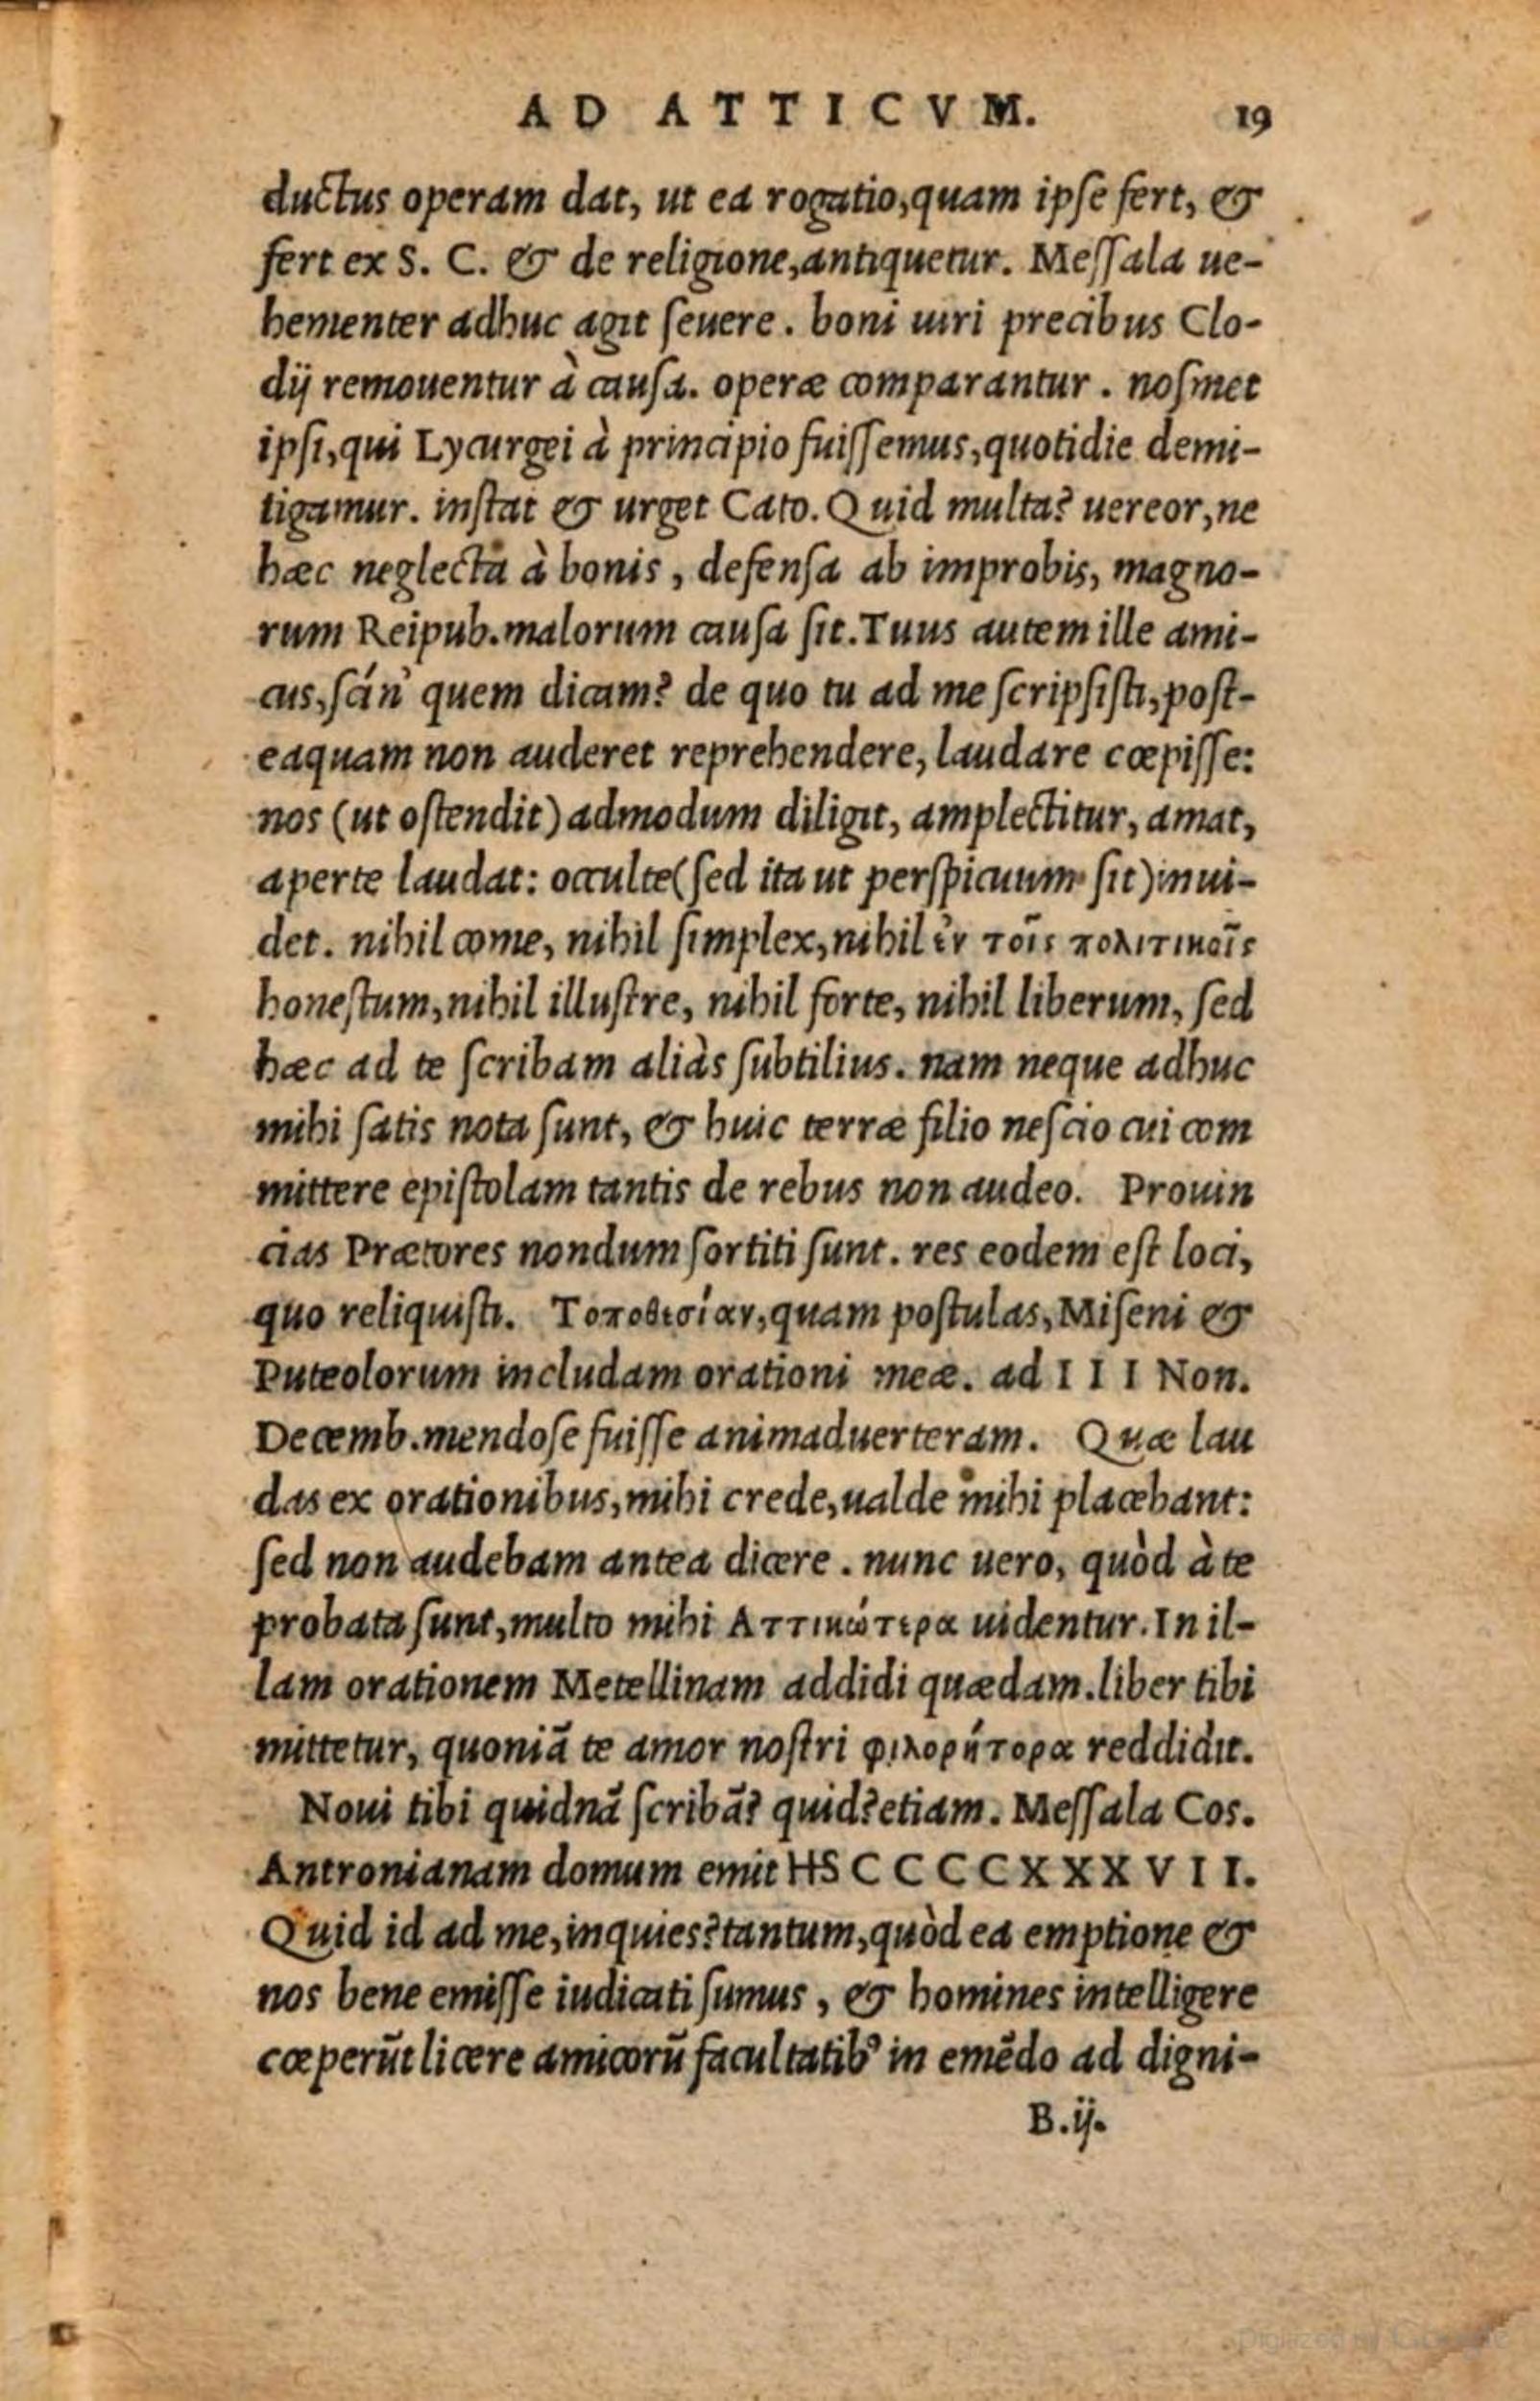 AD ATTICVM. 19
ductus operam dat, ut ea rogatio, quam ipse fert, &
fert ex S. C. & de religione, antiquetur. Messala ue-
hementer adhuc agit seuere. boni uiri precibus Clo-
dij remouentur à causa. operæ comparantur. nosmet
ipsi, qui Lycurgei à principio fuissemus, quotidie demi-
tigamur. instat & urget Cato. Quid multa? uereor, ne
hæc neglecta à bonis, defensa ab improbis, magno-
rum Reipub. malorum causa sit. Tuus autem ille ami-
cus, scín' quem dicam? de quo tu ad me scripsisti, post-
eaquam non auderet reprehendere, laudare cœpisse:
nos (ut ostendit) admodum diligit, amplectitur, amat,
aperte laudat: occulte (sed ita ut perspicuum sit) inui-
det. nihil come, nihil simplex, nihil ἐν τοῖς πολιτικοῖς
honestum, nihil illustre, nihil forte, nihil liberum, sed
hæc ad te scribam aliàs subtilius. nam neque adhuc
mihi satis nota sunt, & huic terræ filio nescio cui com
mittere epistolam tantis de rebus non audeo. Prouin
cias Prætores nondum sortiti sunt. res eodem est loci,
quo reliquisti. Τοποθεσίαν, quam postulas, Miseni &
Puteolorum includam orationi meæ. ad III Non.
Decemb. mendose fuisse animaduerteram. Quæ lau
das ex orationibus, mihi crede, ualde mihi placebant:
sed non audebam antea dicere. nunc uero, quòd à te
probata sunt, multo mihi Αττικώτερα uidentur. In il-
lam orationem Metellinam addidi quædam. liber tibi
mittetur, quoniã te amor nostri φιλορήτορα reddidit.
Noui tibi quidnã scribã? quid? etiam. Messala Cos.
Antronianam domum emit HS CCCCXXXVII.
Quid id ad me, inquies? tantum, quòd ea emptione &
nos bene emisse iudicati sumus, & homines intelligere
cœperũt licere amicorũ facultatibꝰ in emẽdo ad digni-
B.ij.
Digitized by Google